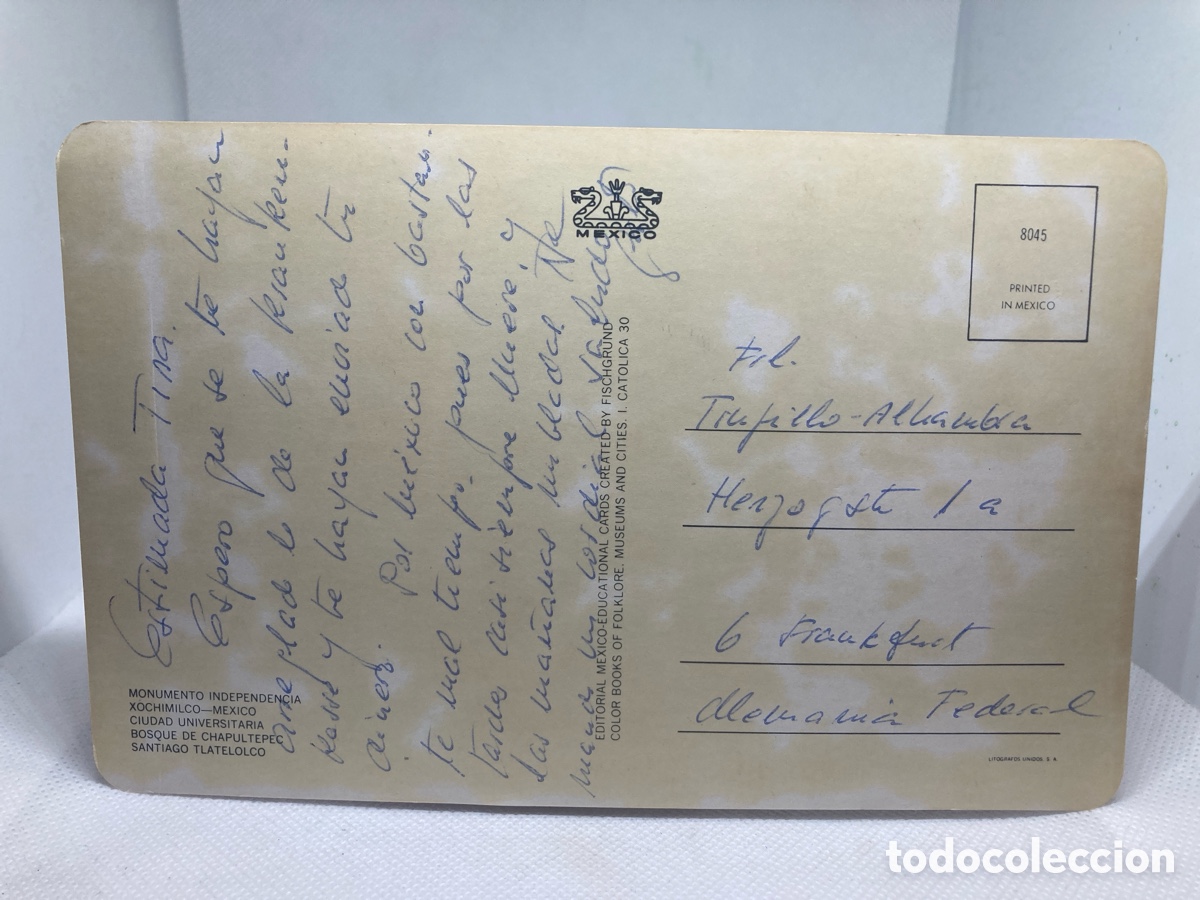 Estimada Tina.
Espero que se te hayan
arreglado lo de la Kranken-
kasse y te hayan enviado tu
dinero. Por México con bastan-
te mal tiempo, pues por las
tardes casi siempre llueve y
las mañanas nubladas.
un cordial saludo
MEXICO
EDITORIAL MEXICO-EDUCATIONAL CARDS CREATED BY FISCHGRUND
COLOR BOOKS OF FOLKLORE. MUSEUMS AND CITIES. I. CATOLICA 30
MONUMENTO INDEPENDENCIA
XOCHIMILCO—MEXICO
CIUDAD UNIVERSITARIA
BOSQUE DE CHAPULTEPEC
SANTIAGO TLATELOLCO
8045
PRINTED
IN MEXICO
Frl.
Trujillo-Alhambra
Herzogstr 1a
6 Frankfurt
Alemania Federal
LITOGRAFOS UNIDOS, S. A.
todocoleccion